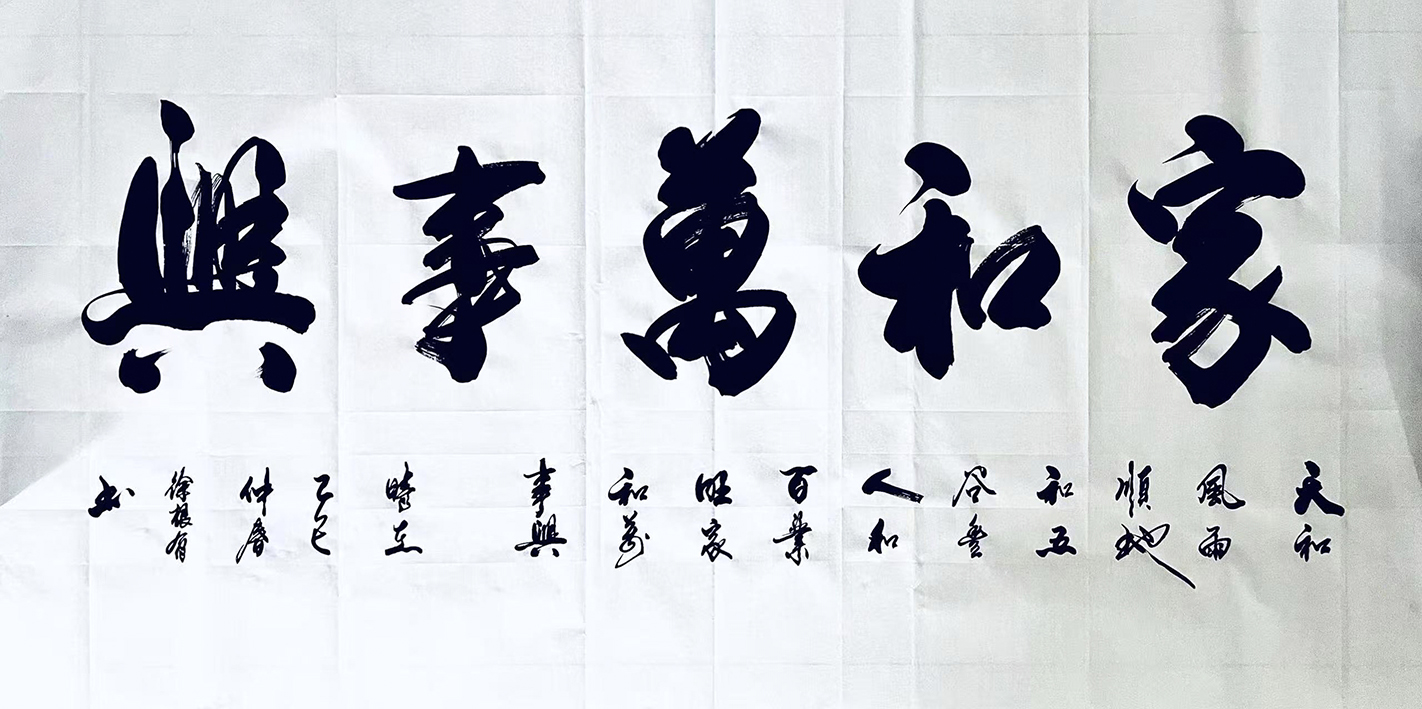 家和萬事興
天和
風雨
順地
和五
谷豐
人和
百業
旺家
和萬
事興
時在
乙巳
仲春
徐根有
书